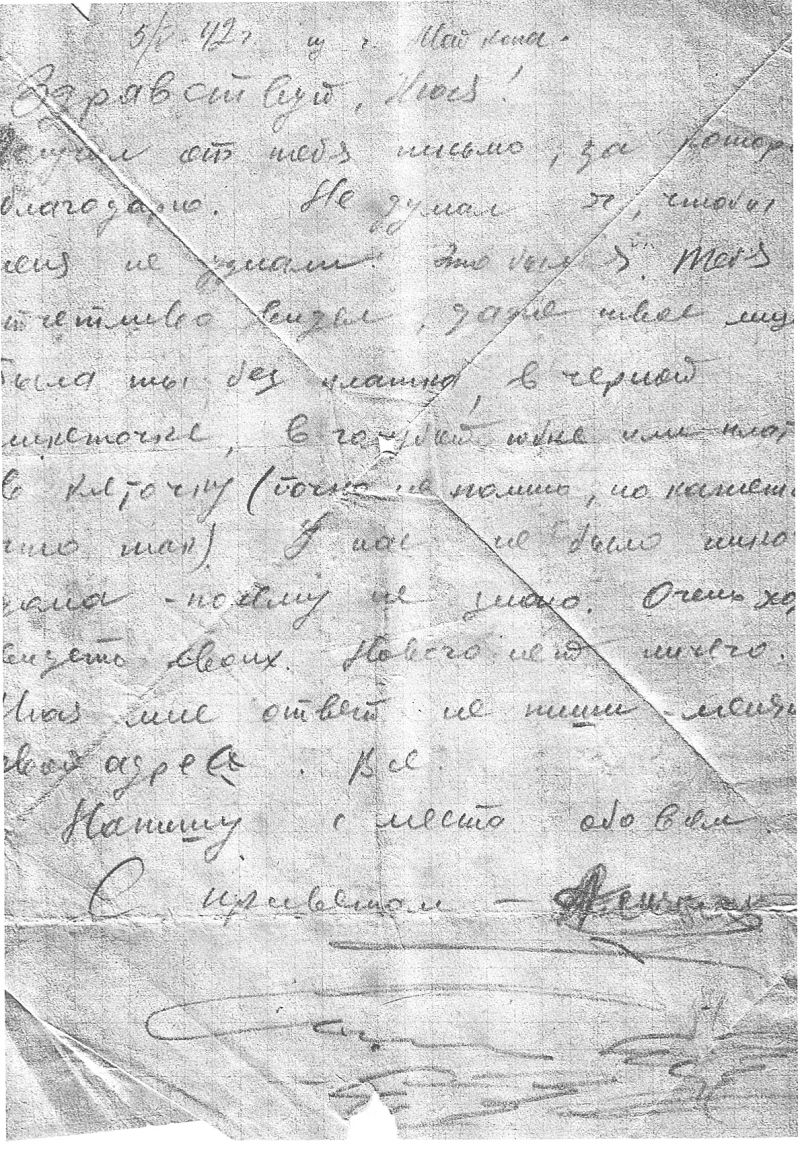 5/V-42г. из г. Майкопа.
Здравствуй, Нюся!
Получил от тебя письмо, за котор
благодарю. Не думал я, чтобы
меня не узнали. Это был я. Тебя
отчетливо видел, даже твое лицо
была ты без платка, в черной
жакеточке, в голубой юбке или плат
в клеточку (точно не помню, но кажетс
что так). У нас не было нико
дома - почему не знаю. Очень хо
видеть своих. Нового нет ничего.
Нюся мне ответ не пиши - меняю
свой адрес. Все.
Напишу с места обо всем.
С приветом -